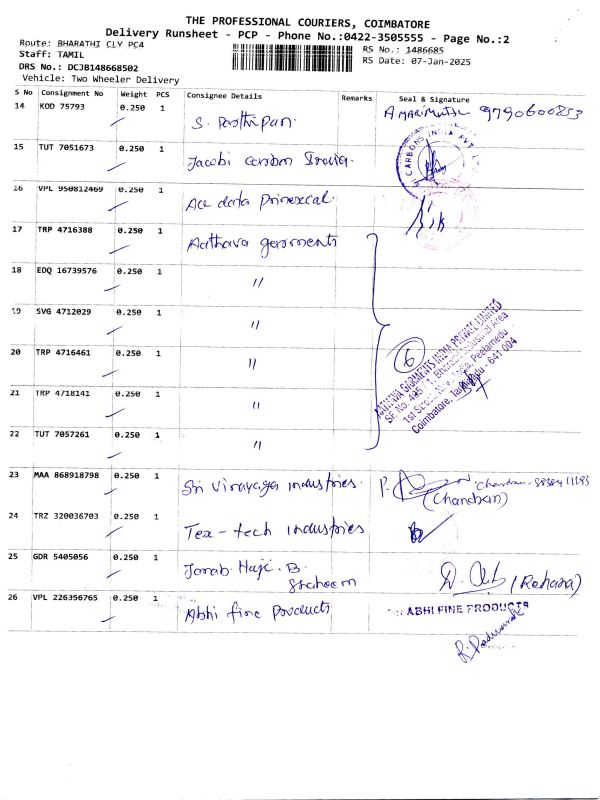 THE PROFESSIONAL COURIERS, COIMBATORE
Delivery Runsheet - PCP - Phone No.:0422-3505555 - Page No.:2
Route: BHARATHI CLY PC4
RS No.: 1486685
Staff: TAMIL
RS Date: 07-Jan-2025
DRS No.: DCJB148668502
Vehicle: Two Wheeler Delivery
S No Consignment No Weight PCS Consignee Details Remarks Seal & Signature
14 KOD 75793 0.250 1 S. Parthipan. 9790600853
15 TUT 7051673 0.250 1 Jacobi carbon
CARBONS INDIA PVT
16 VPL 950812469 0.250 1 Ace data
17 TRP 4716388 0.250 1 Aathava garments
18 EDQ 16739576 0.250 1 "
19 SVG 4712029 0.250 1 "
20 TRP 4716461 0.250 1 " 6
GARMENTS INDIA PRIVATE LIMITED
Coimbatore, 641 004
21 TRP 4718141 0.250 1 "
22 TUT 7057261 0.250 1 "
23 MAA 868918798 0.250 1 Sri Vinayaga industries.
(Chandran)
24 TRZ 320036703 0.250 1 Tex-tech industries
25 GDR 5405056 0.250 1 Janab. Haji. B.
(Rehana)
26 VPL 226356765 0.250 1 Abhi fine Products
ABHI FINE PRODUCTS